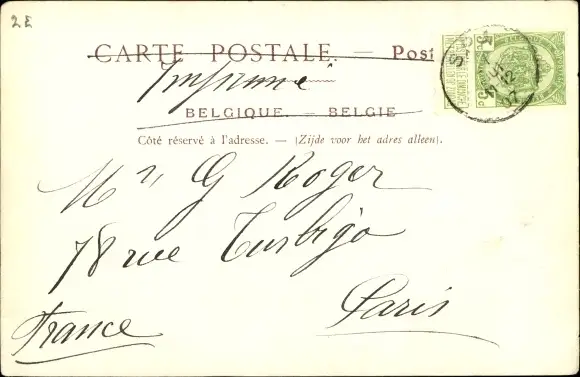 2E
CARTE POSTALE. — Post
Imprimé
BELGIQUE. — BELGIE
Côté réservé à l'adresse. — (Zijde voor het adres alleen).
Mr G Roger
78 rue Turbigo
Paris
France